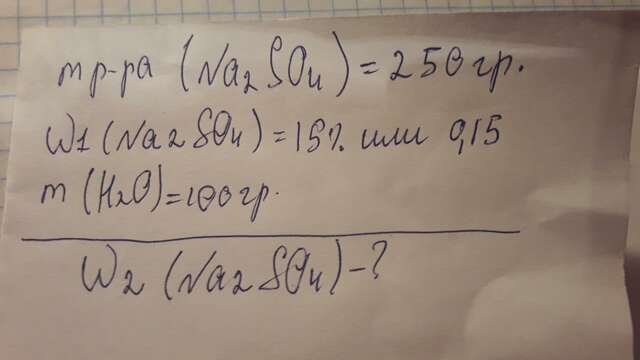 m р-ра (Na2SO4) = 250 гр.
W1 (Na2SO4) = 15% или 0,15
m (H2O) = 100 гр.
W2 (Na2SO4) - ?